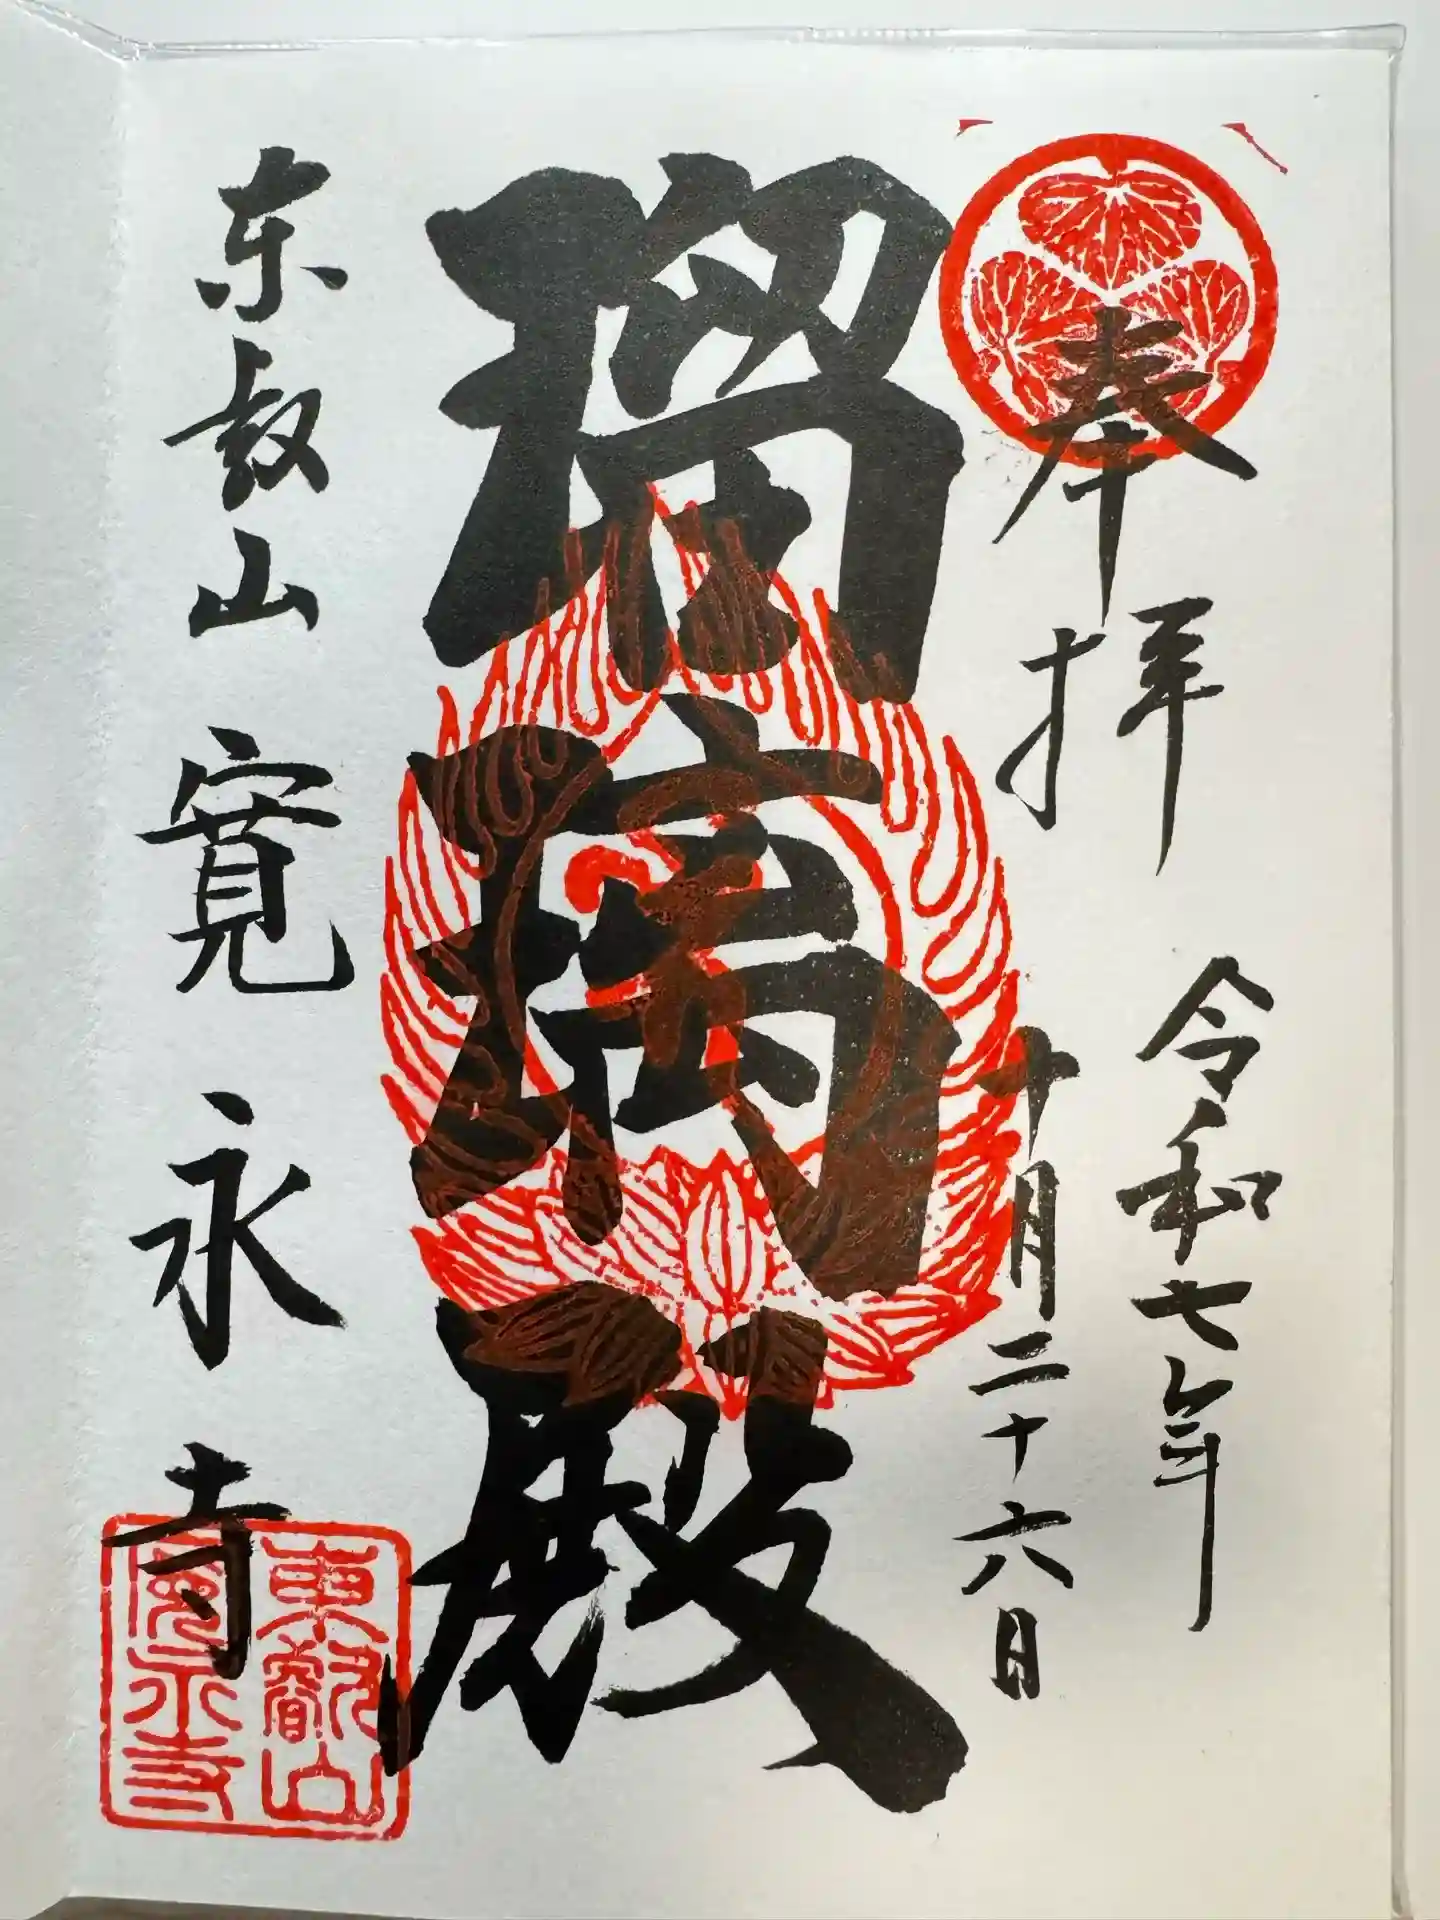 奉拝
令和七年
十月二十六日
瑠璃殿
东叡山 寛永寺
東叡山
寛永寺